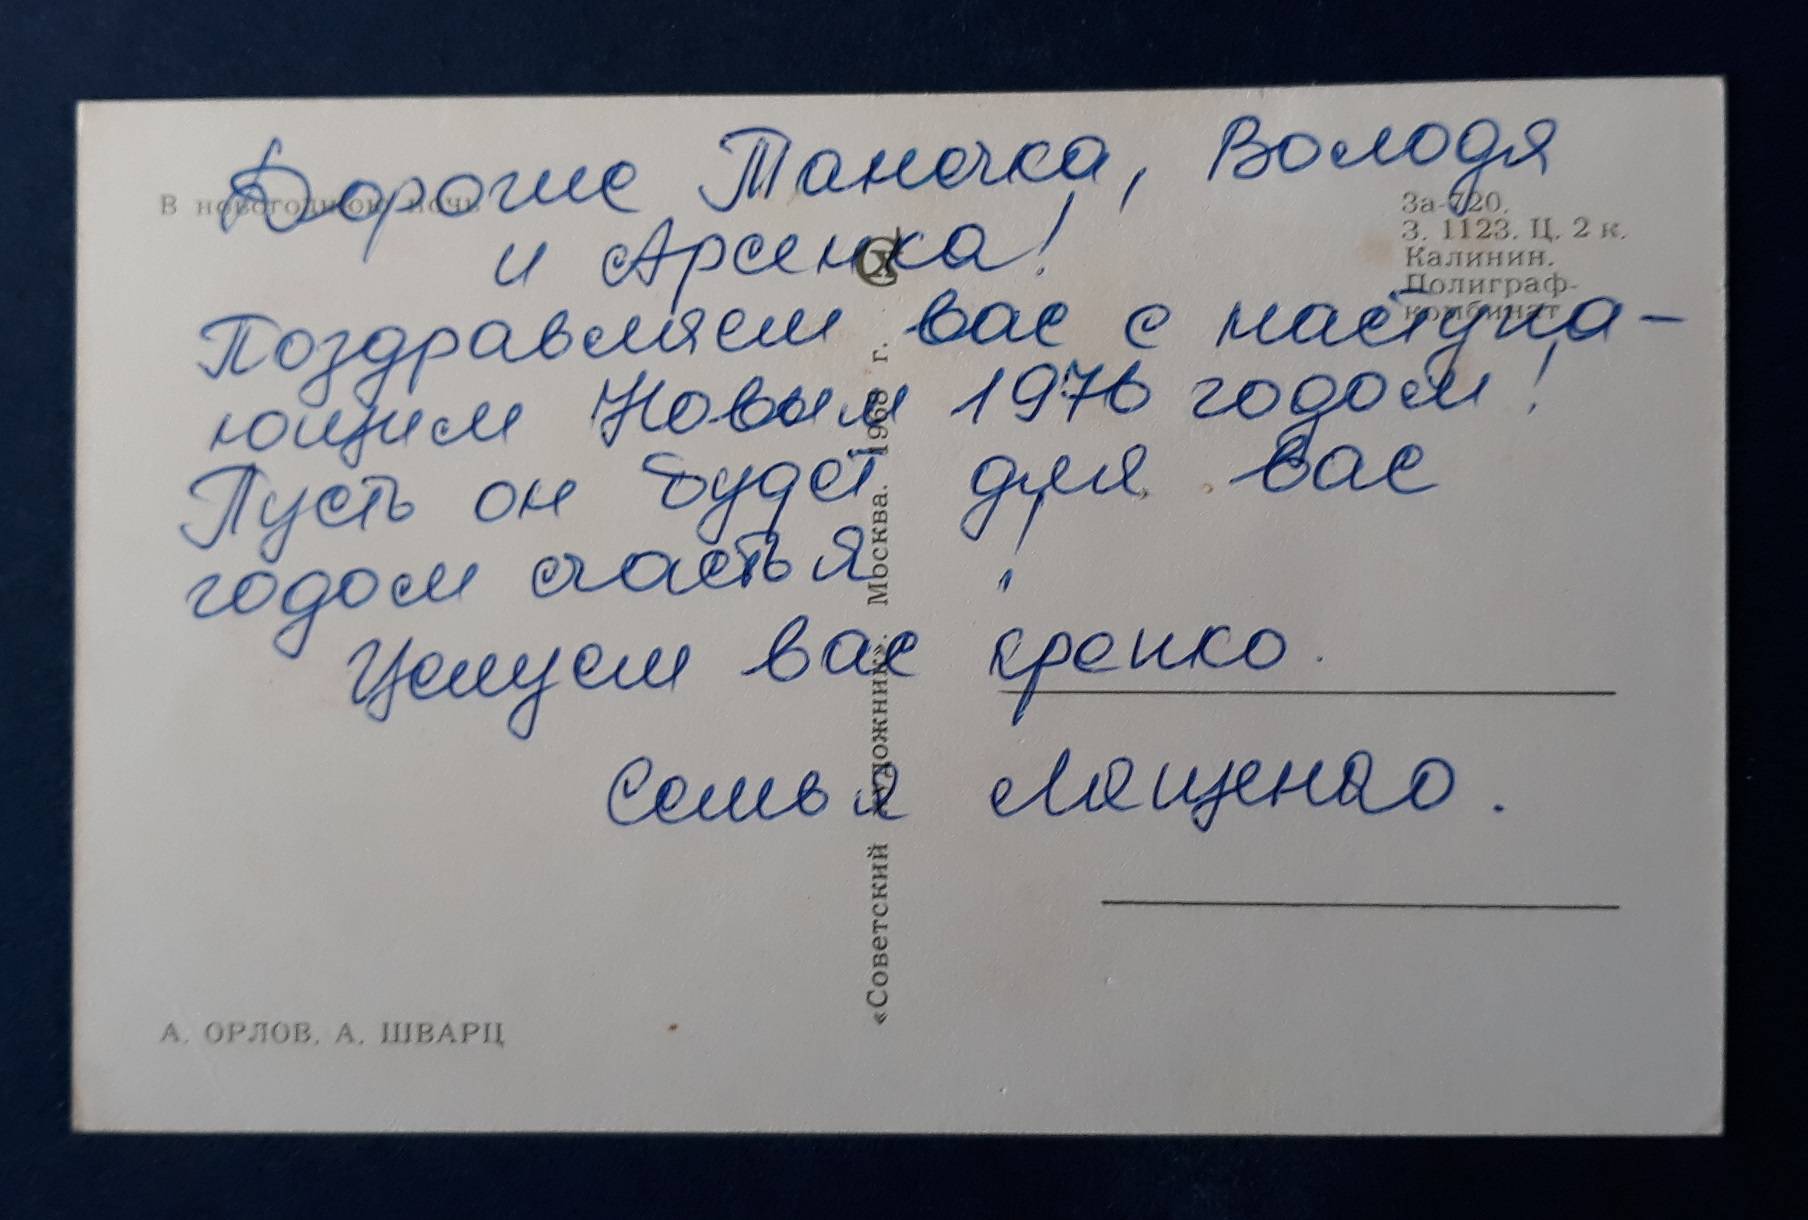 Дорогие Танечка, Володя
и Арсенка!
Поздравляем вас с наступа-
ющим Новым 1976 годом!
Пусть он будет для вас
годом счастья!
Целуем вас крепко.
Семья Лященко.
В новогоднюю ночь
За-720.
З. 1123. Ц. 2 к.
Калинин.
Полиграф-
комбинат
«Советский художник». Москва. 1968 г.
А. ОРЛОВ, А. ШВАРЦ